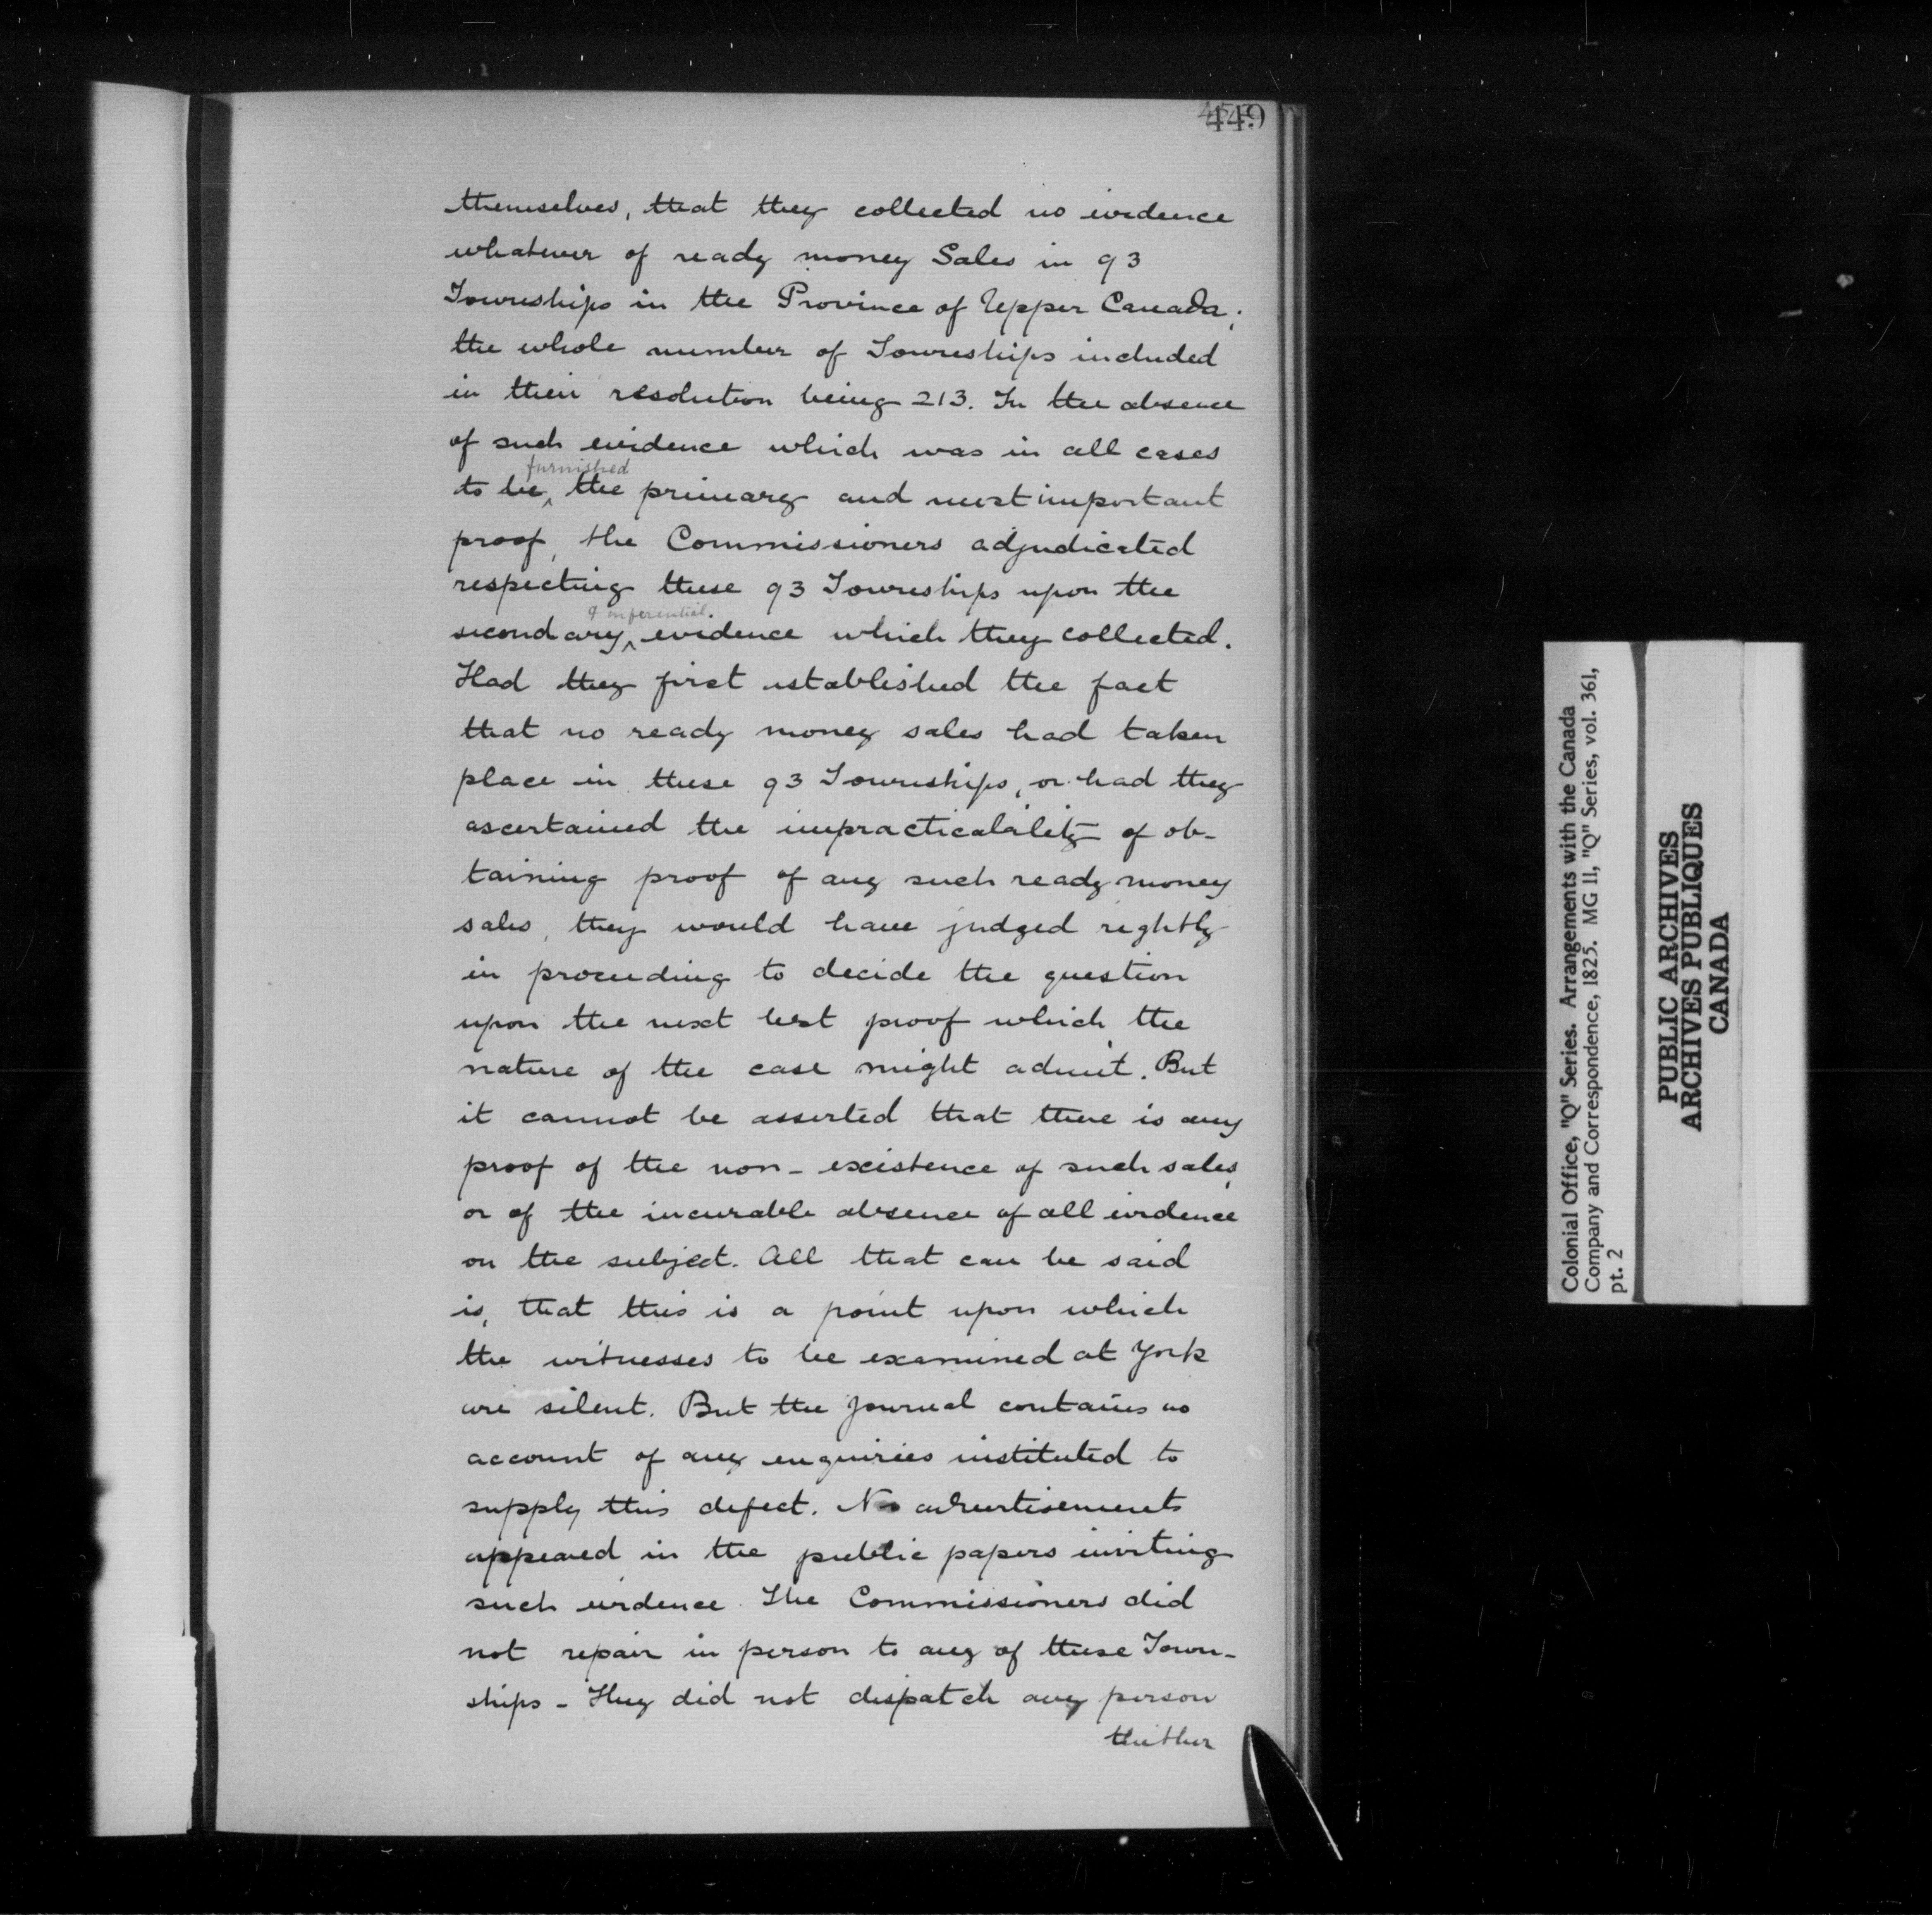 449
themselves, that they collected no evidence
whatever of ready money Sales in 93
Townships in the Province of Upper Canada;
the whole number of Townships included
in their resolution being 213. In the absence
of such evidence which was in all cases
furnished
to be ^ the primary and most important
proof, the Commissioners adjudicated
respecting these 93 Townships upon the
& inferential.
secondary ^ evidence which they collected.
Had they first established the fact
that no ready money sales had taken
place in these 93 Townships, or had they
ascertained the impracticability of ob-
taining proof of any such ready money
sales, they would have judged rightly
in proceeding to decide the question
upon the next best proof which the
nature of the case might admit. But
it cannot be asserted that there is any
proof of the non-existence of such sales,
or of the incurable absence of all evidence
on the subject. All that can be said
is, that this is a point upon which
the witnesses to be examined at York
are silent. But the Journal contains no
account of any enquiries instituted to
supply this defect. No advertisements
appeared in the public papers inviting
such evidence. The Commissioners did
not repair in person to any of these Town-
ships - They did not dispatch any person
thither
Colonial Office, "Q" Series. Arrangements with the Canada
Company and Correspondence, 1825. MG 11, "Q" Series, vol. 361,
pt. 2
PUBLIC ARCHIVES
ARCHIVES PUBLIQUES
CANADA